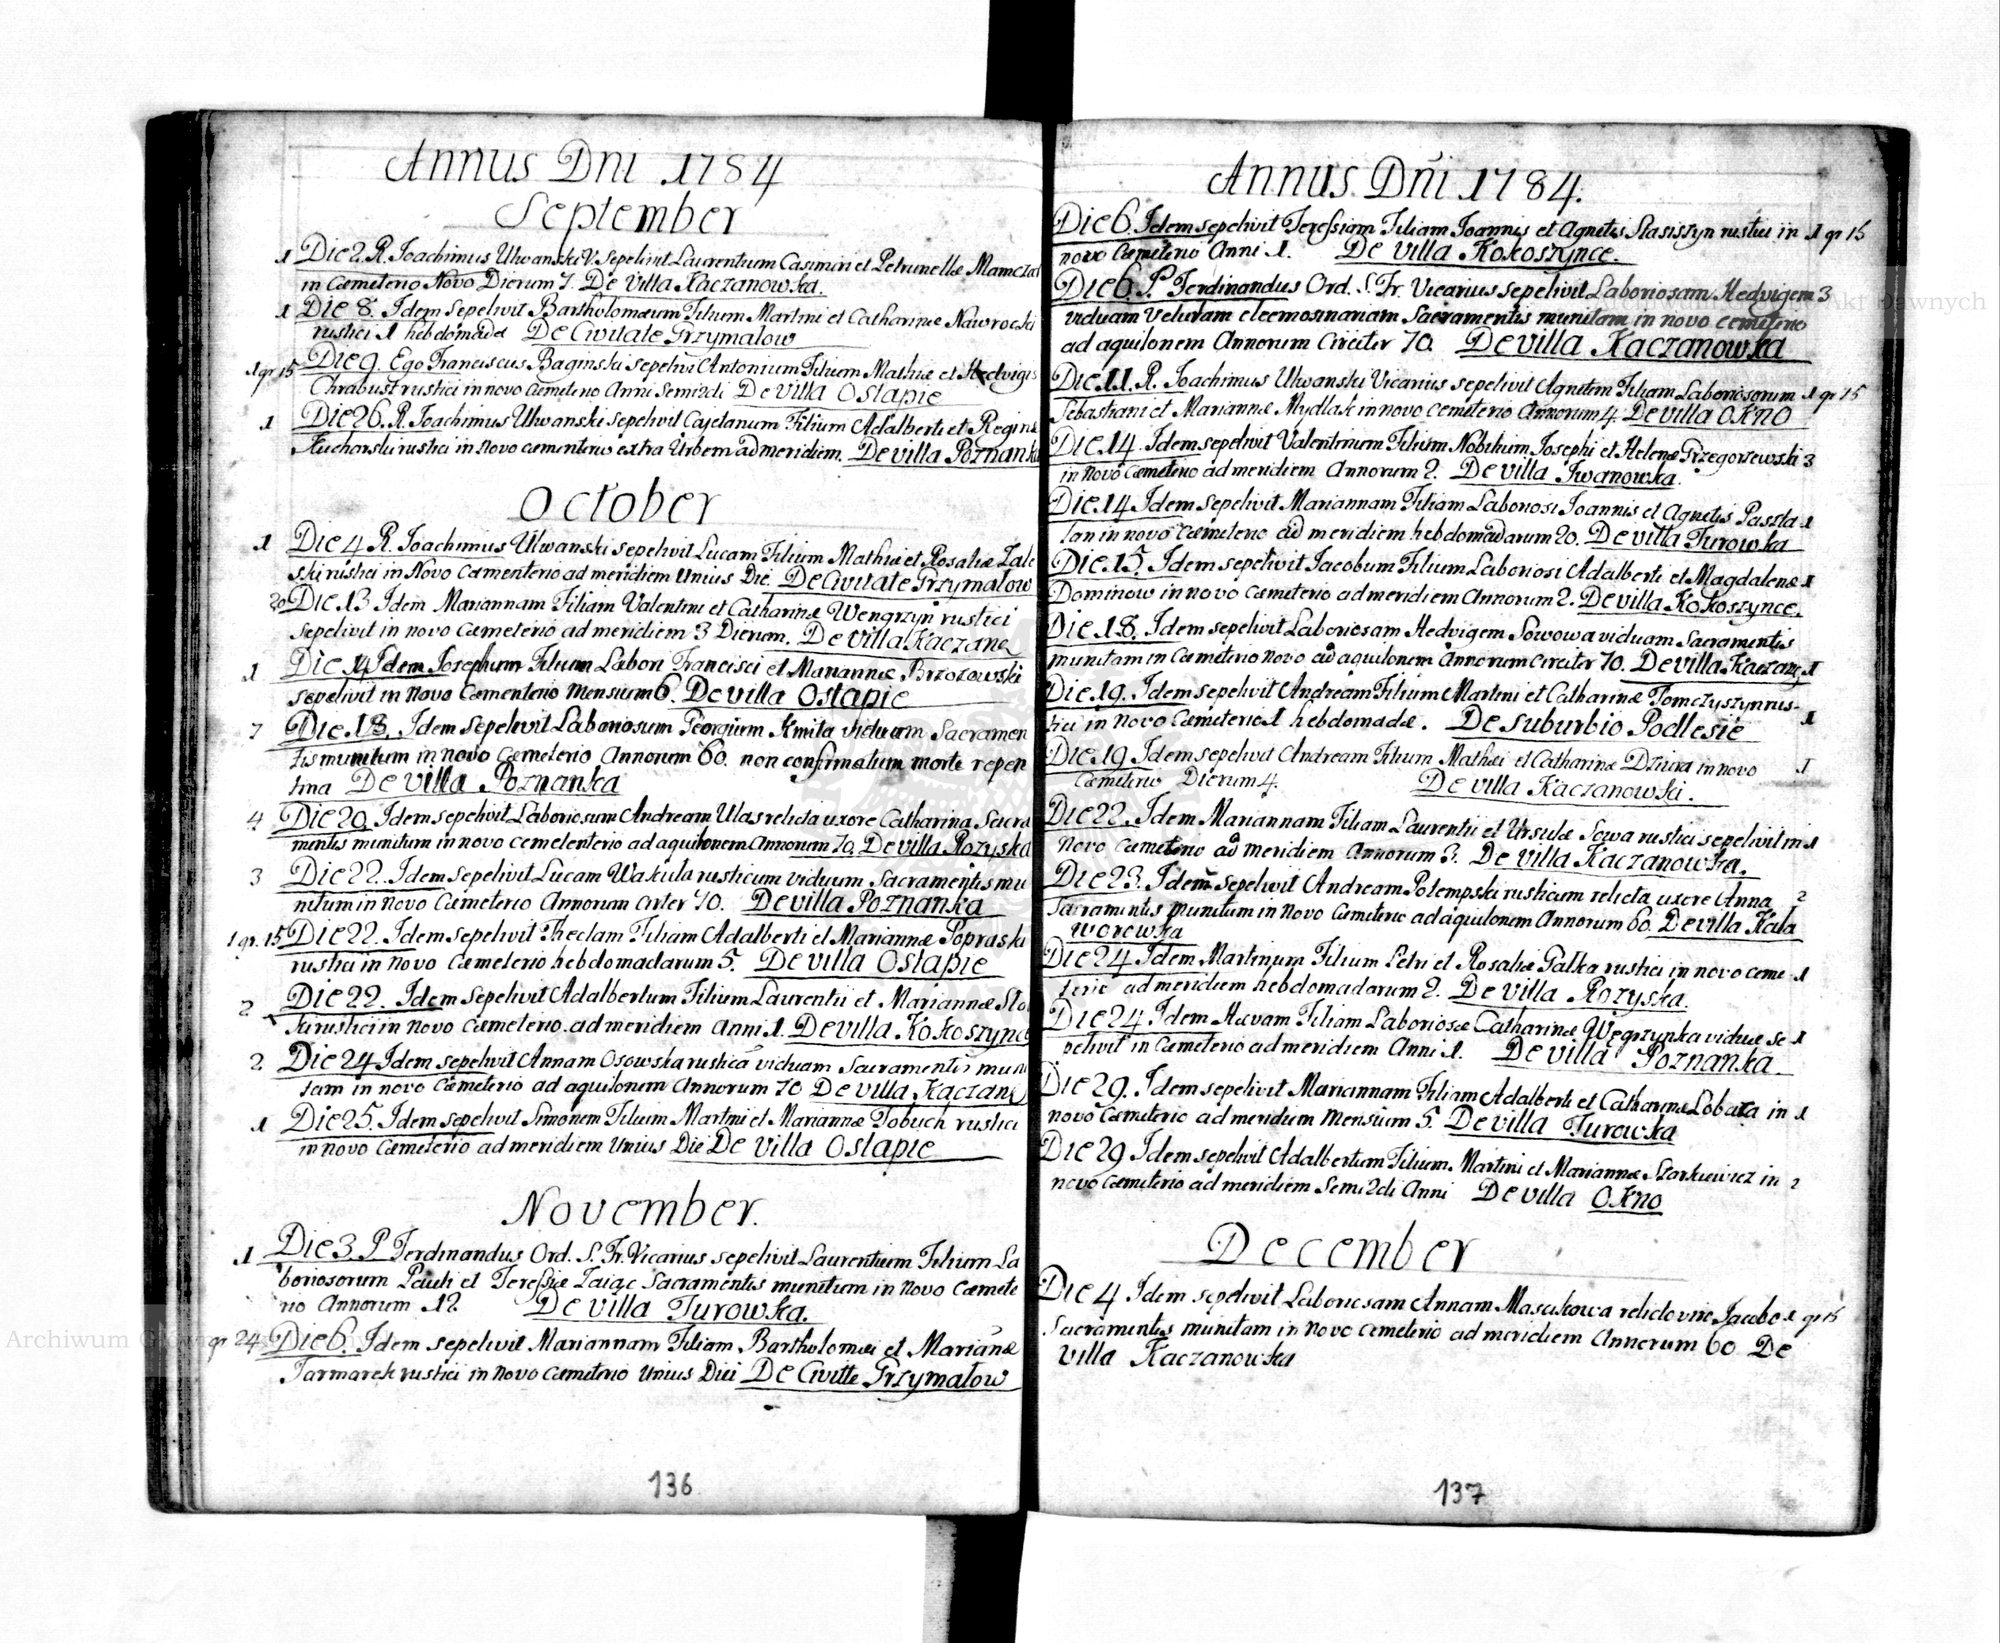 Annus Dni 1784
September
1 Die 2. R. Joachimus Ulwanski V. sepelivit Laurentium Casimiri et Petrunellæ Mamczar
in Cæmeterio Novo Dierum 7. De Villa Kaczanowka.
1 Die 8. Idem Sepelivit Bartholomæum Filium Martini et Catharinæ Nawrocki
rustici 1 hebdomadæ De Civitate Grzymalow
1 gr 15 Die 9. Ego Franciscus Baginski sepelivi Antonium Filium Mathiæ et Hedvigis
Chrabust rustici in novo Cæmeterio Anni Semi2di De Villa Ostapie
1 Die 26. R. Joachimus Ulwanski sepelivit Cajetanum Filium Adalberti et Reginæ
Kuchorski rustici in Novo cæmenterio extra Urbem ad meridiem. De villa Poznanka
October
1 Die 4 R. Joachimus Ulwanski sepelivit Lucam Filium Mathiæ et Rosaliæ Zale
ski rustici in Novo Cæmenterio ad meridiem Unius Die. De Civitate Grzymalow
20 Die 13 Idem Mariannam Filiam Valentini et Catharinæ Wengrzyn rustici
sepelivit in novo Cæmeterio ad meridiem 3 Dierum. De Villa Kaczano
1 Die 14 Idem Josephum Filium Labori Francisci et Mariannæ Brzozowski
sepelivit in Novo Cæmenterio Mensium 6. De villa Ostapie
7 Die 18. Idem Sepelivit Laboriosum Georgium Kmita viduum Sacramen
tis munitum in novo Cæmeterio Annorum 60. non confirmatum morte repen
tina De villa Poznanka
4 Die 20. Idem sepelivit Laboriosum Andream Ulas relicta uxore Catharina Sacra
mentis munitum in novo cemelenterio ad aquilonem Annorum 70. De villa Rozyska
3 Die 22. Idem sepelivit Lucam Wakula rusticum viduum Sacramentis mu
nitum in Novo Cæmeterio Annorum Citter 70. De villa Poznanka
1 gr. 15 Die 22. Idem sepelivit Theclam Filiam Adalberti et Mariannæ Popraski
rustici in Novo Cæmeterio hebdomadarum 5. De villa Ostapie
2 Die 22. Idem sepelivit Adalbertum Filium Laurentii et Mariannæ Slo
ki rustici in Novo Cæmeterio ad meridiem Anni 1. De villa Kokoszynce
2 Die 24 Idem sepelivit Annam Osowska rustica viduam Sacramentis muni
tam in novo Cæmeterio ad aquilonem Annorum 70 De villa Kaczano
1 Die 25. Idem sepelivit Simonem Filium Martini et Mariannæ Tobuch rustici
in novo Cæmeterio ad meridiem Unius Die De Villa Ostapie
November.
1 Die 3 P Ferdinandus Ord. S. Fr. Vicarius sepelivit Laurentium Filium La
boriosorum Pauli et Teressiæ Zaiąc Sacramentis munitum in Novo Cæmete
rio Annorum 12 De villa Turowka.
gr 24 Die 6. Idem sepelivit Mariannam Filiam Bartholomæi et Marianæ
Jarmarek rustici in Novo Cæmiterio Unius Diei De Civitte Grzymalow
136
Annus Dñi 1784.
Die 6. Idem sepelivit Teressiam Filiam Joannis et Agnetis Stasiszyn rustici in 1 gr 15
novo Cæmeterio Anni 1. De Villa Kokoszynce.
Die 6. P. Ferdinandus Ord. S. Fr. Vicarius sepelivit Laboriosam Hedvigem 3
viduam Vetulam eleemosinariam Sacramentis munitam in novo cemiterio
ad aquilonem Annorum Circiter 70. De villa Kaczanowka
Die 11. R. Joachimus Ulwanski Vicarius sepelivit Agnetem Filiam Laboriosorum 1 gr 15
Sebastiani et Mariannæ Mydlak in novo cemeterio Annorum 4. De villa Okno
Die 14. Idem sepelivit Valentinum Filium Nobilium Josephi et Helenæ Grzegorzewski 3
in Novo Cæmeterio ad meridiem Annorum 2. De villa Iwanowka.
Die 14 Idem Sepelivit Mariannam Filiam Laboriosi Joannis et Agnetis Paszta 1
lan in novo Cæmeterio ad meridiem hebdomadarum 20. De villa Turowka
Die 15. Idem sepelivit Jacobum Filium Laboriosi Adalberti et Magdalenæ 1
Dominow in novo Cæmeterio ad meridiem Annorum 2. De villa Kokoszynce.
Die 18. Idem sepelivit Laboriosam Hedvigem Sowowa viduam Sacramentis
munitam in Cæmeterio Novo ad aquilonem Annorum Circiter 70. De villa Kaczano 1
Die 19. Idem sepelivit Andream Filium Martini et Catharinæ Tomczyszyn rus-
tici in Novo Cæmeterio 1 hebdomadæ. De Suburbio Podlesie 1
Die 19 Idem sepelivit Andream Filium Mathæi et Catharinæ Dziura in novo 1
Cæmeterio Dierum 4. De villa Kaczanowski.
Die 22. Idem Mariannam Filiam Laurentii et Ursulæ Sowa rustici sepelivit in 1
Novo Cæmeterio ad meridiem Annorum 3. De villa Kaczanowka.
Die 23. Idem sepelivit Andream Potempski rusticum relicta uxore Anna 2
Sacramentis munitum in Novo Cæmeterio ad aquilonem Annorum 60. De villa Kala
worowka
Die 24 Idem Martinum Filium Petri et Rosaliæ Galka rustici in novo ceme- 1
terio ad meridiem hebdomadarum 2. De villa Rozyska.
Die 24 Idem Hævam Filiam Laboriosæ Catharinæ Węgrzynka viduæ se 1
pelivit in Cæmeterio ad meridiem Anni 1. De villa Poznanka.
Die 29. Idem sepelivit Mariannam Filiam Adalberti et Catharinæ Lobaza in 1
novo Cæmeterio ad meridiem Mensium 5. De villa Turowka
Die 29 Idem sepelivit Adalbertum Filium Martini et Mariannæ Szarkiewicz in 2
novo Cæmeterio ad meridiem Semi2di Anni De villa Okno
December
Die 4 Idem sepelivit Laboriosam Annam Masukowa relicto viro Jacobo 1 gr 15
Sacramentis munitam in Novo Cæmeterio ad meridiem Annorum 60 De
villa Kaczanowka
137